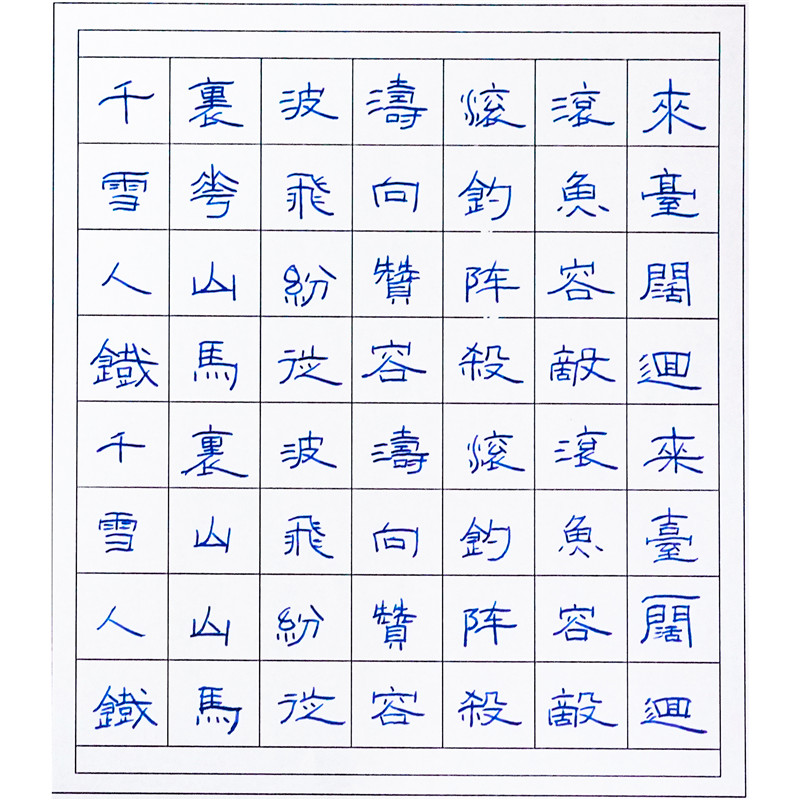 千裏波濤滾滾來
雪華飛向釣魚臺
人山紛贊阵容闊
鐵馬從容殺敵迴
千裏波濤滾滾來
雪山飛向釣魚臺
人山紛贊阵容闊
鐵馬從容殺敵迴